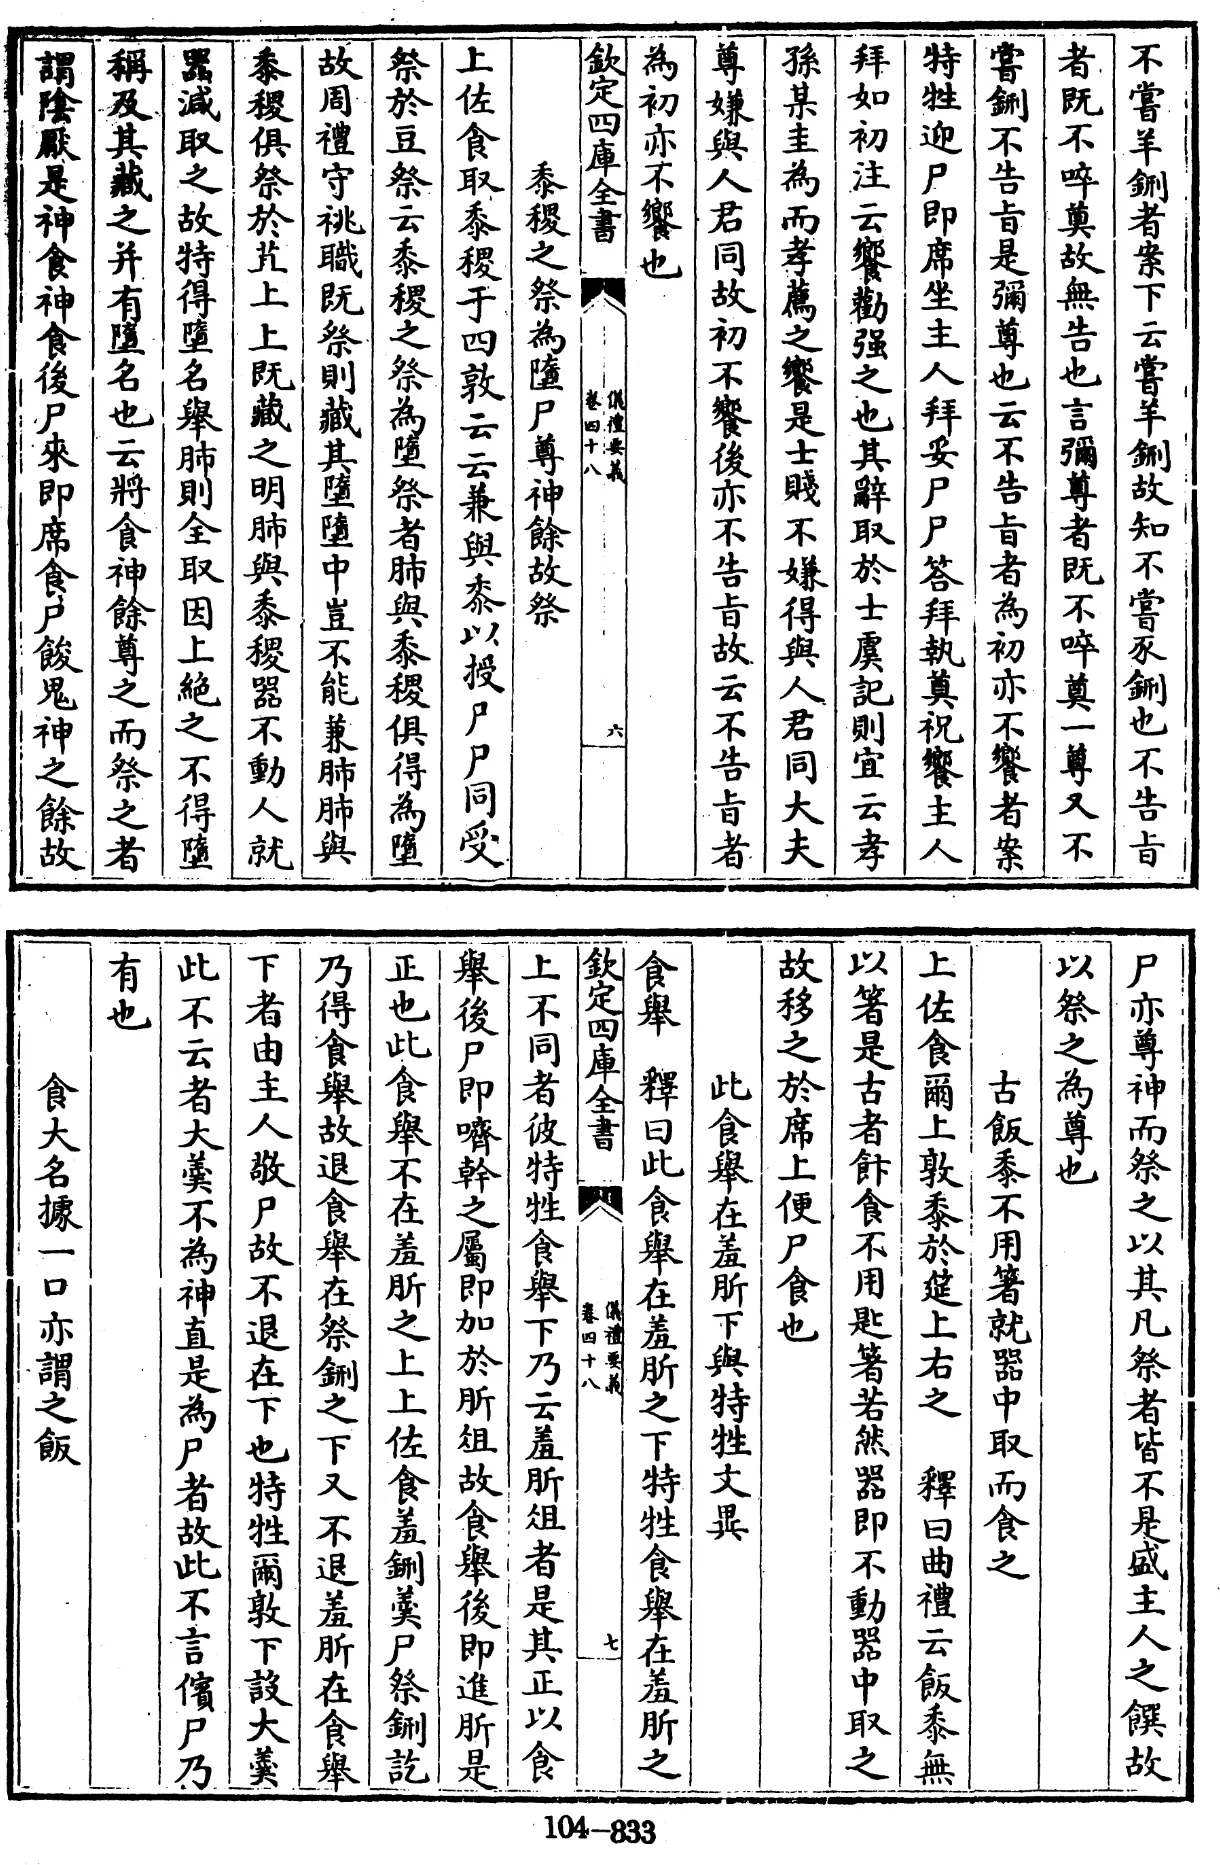 不嘗羊鉶者案下云嘗羊鉶故知不嘗豕鉶也不告旨
者既不啐奠故無告也言彌尊者既不啐奠一尊又不
嘗鉶不告旨是彌尊也云不告旨者為初亦不饗者案
特牲迎尸即席坐主人拜妥尸尸答拜執奠祝饗主人
拜如初注云饗勸强之也其辭取於士虞記則宜云孝
孫某圭為而孝薦之饗是士賤不嫌得與人君同大夫
尊嫌與人君同故初不饗後亦不告旨故云不告旨者
為初亦不饗也
欽定四庫全書
儀禮要義
卷四十八
六
黍稷之祭為墮尸尊神餘故祭
上佐食取黍稷于四敦云云兼與黍以授尸尸同受
祭於豆祭云黍稷之祭為墮祭者肺與黍稷俱得為墮
故周禮守祧職既祭則藏其墮墮中豈不能兼肺肺與
黍稷俱祭於苴上上既藏之明肺與黍稷器不動人就
器減取之故特得墮名舉肺則全取因上絶之不得墮
稱及其藏之并有墮名也云將食神餘尊之而祭之者
謂陰厭是神食神食後尸來即席食尸餕鬼神之餘故
尸亦尊神而祭之以其凡祭者皆不是盛主人之饌故
以祭之為尊也
古飯黍不用箸就器中取而食之
上佐食爾上敦黍於筵上右之 釋曰曲禮云飯黍無
以箸是古者飰食不用匙箸若然器即不動器中取之
故移之於席上便尸食也
此食舉在羞肵下與特牲文異
食舉 釋曰此食舉在羞肵之下特牲食舉在羞肵之
欽定四庫全書
儀禮要義
卷四十八
七
上不同者彼特牲食舉下乃云羞肵俎者是其正以食
舉後尸即嚌幹之屬即加於肵俎故食舉後即進肵是
正也此食舉不在羞肵之上上佐食羞鉶羮尸祭鉶訖
乃得食舉故退食舉在祭鉶之下又不退羞肵在食舉
下者由主人敬尸故不退在下也特牲爾敦下設大羮
此不云者大羮不為神直是為尸者故此不言儐尸乃
有也
食大名據一口亦謂之飯
104-833